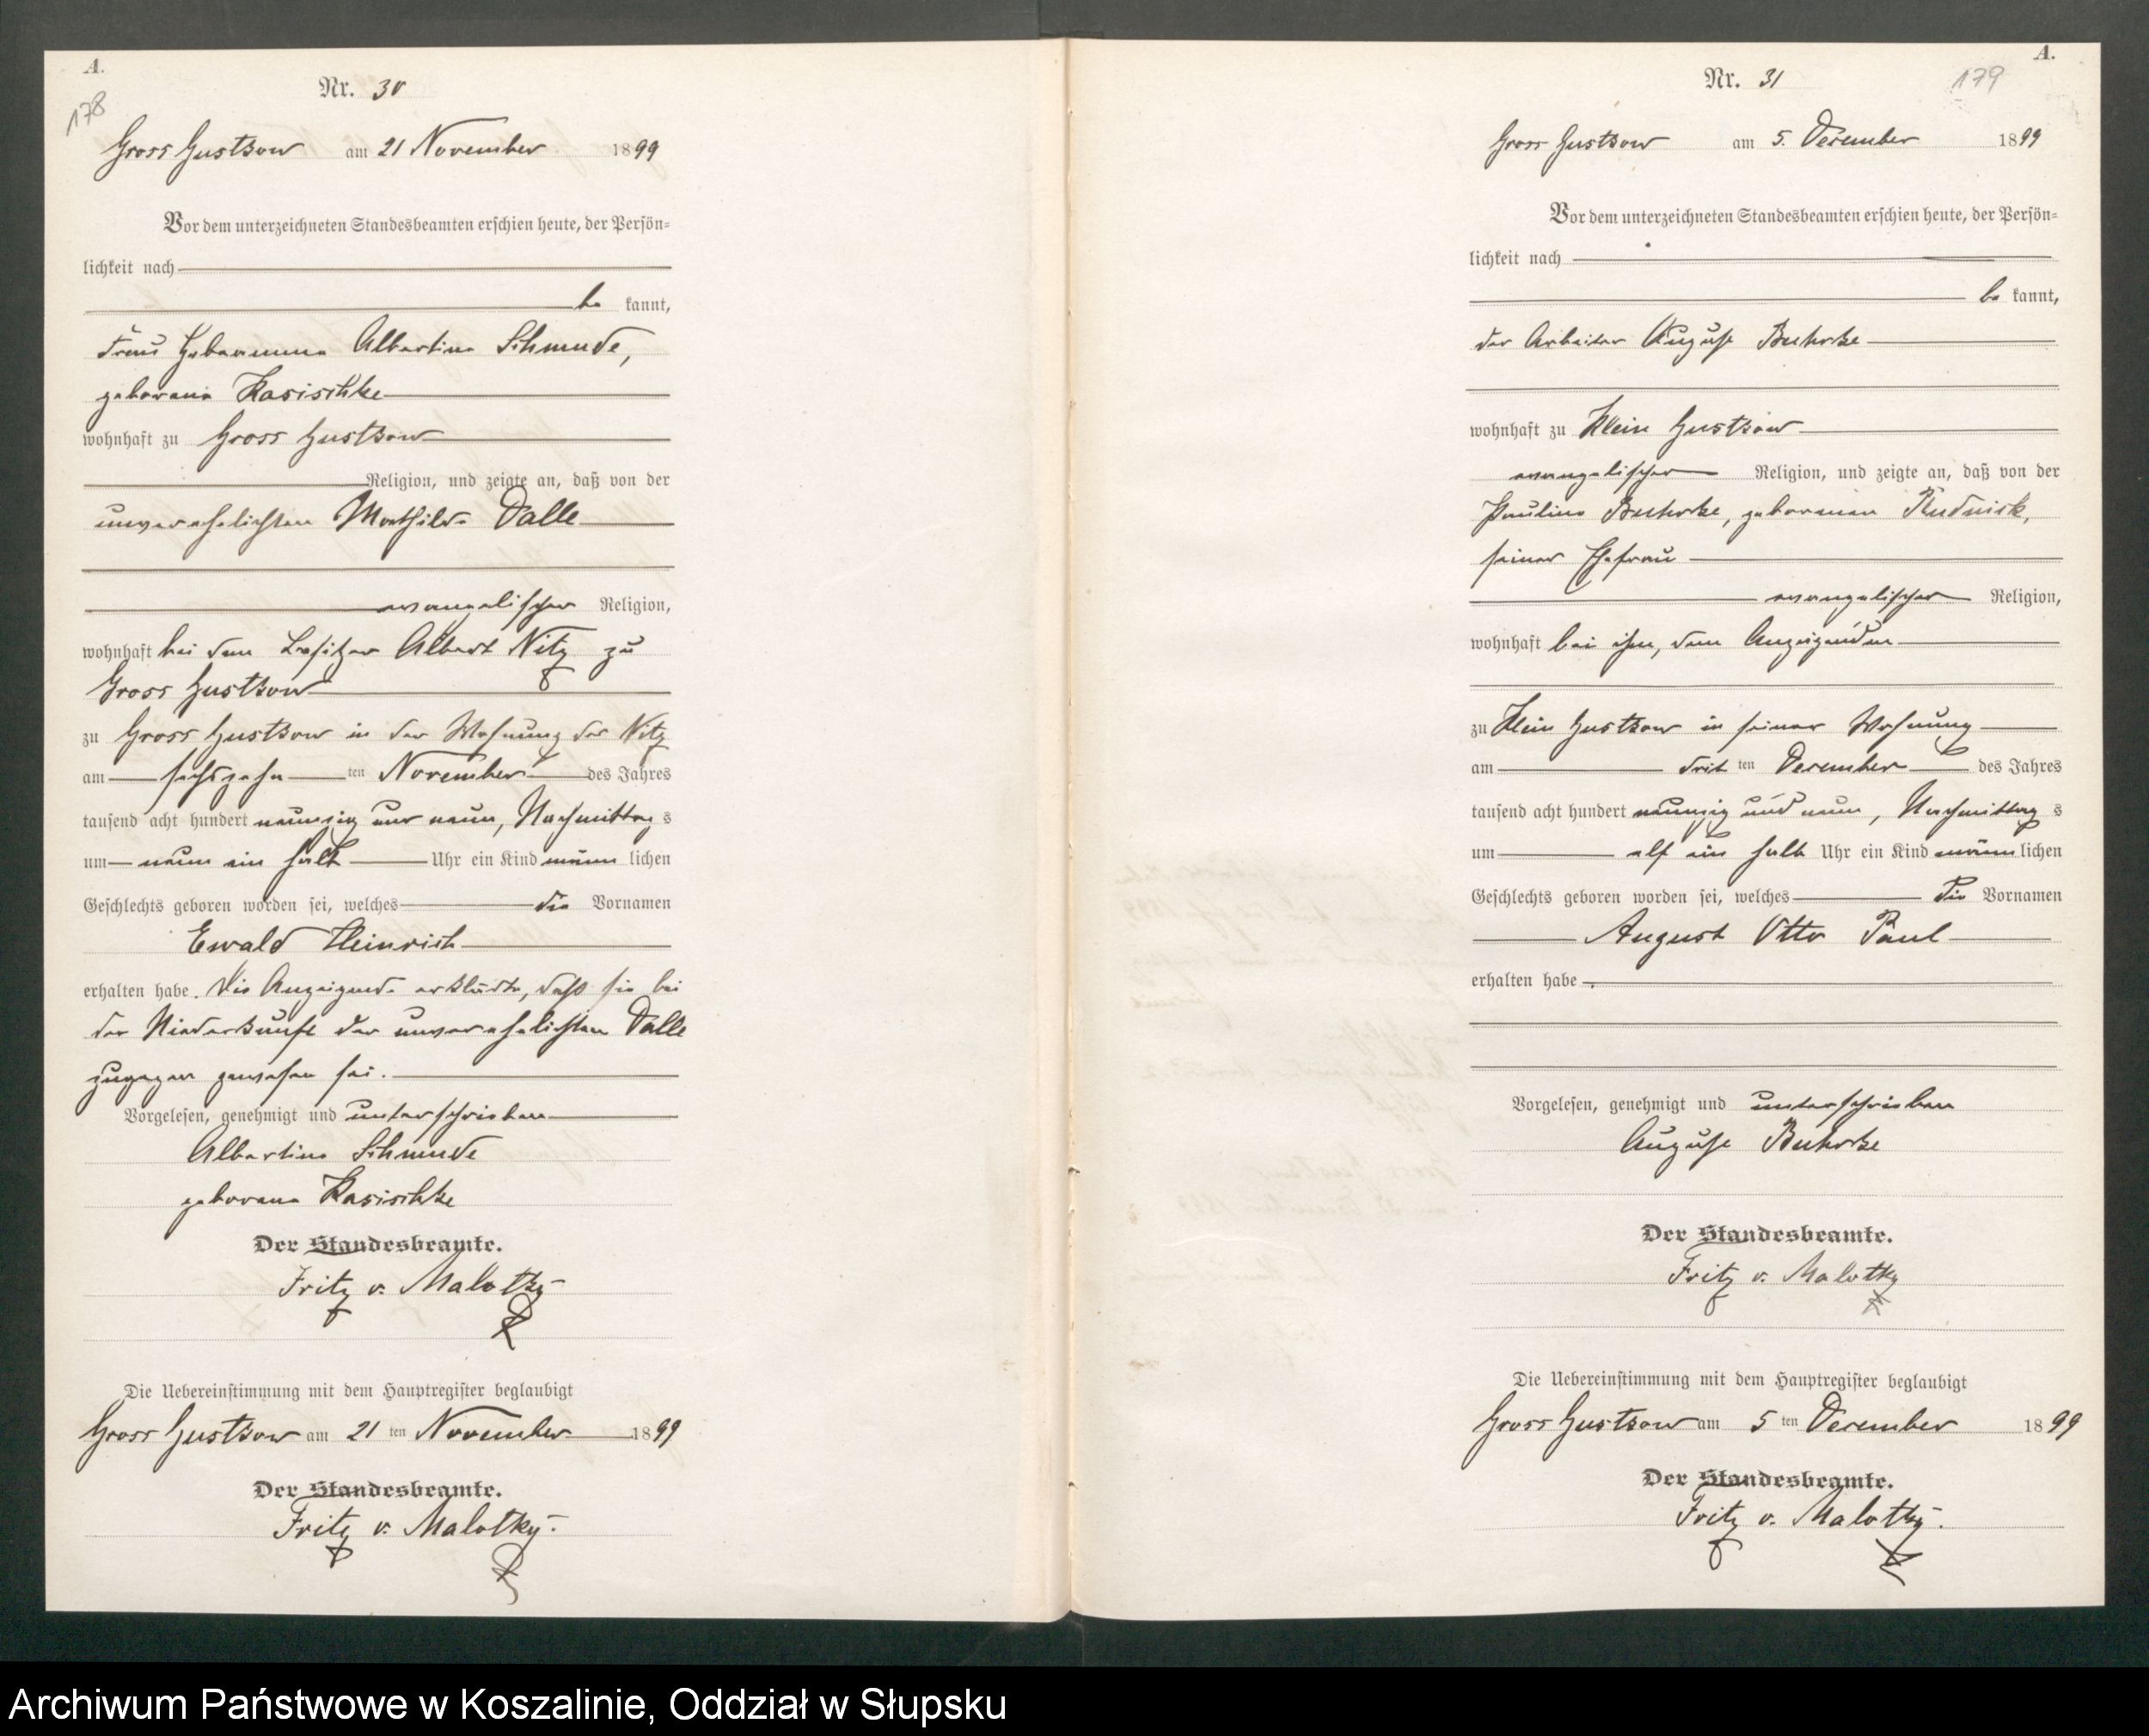 A.
178
Nr. 30
Gross Gustkow am 21 November 1899
Vor dem unterzeichneten Standesbeamten erschien heute, der Persön-
lichkeit nach
be kannt,
Frau Hebamme Albertine Schmude,
geborene Kasischke
wohnhaft zu Gross Gustkow
Religion, und zeigte an, daß von der
unverehelichten Mathilde Dalle
evangelischer Religion,
wohnhaft bei dem Besitzer Albert Nitz zu
Gross Gustkow
zu Gross Gustkow in der Wohnung des Nitz
am sechszehn ten November des Jahres
tausend acht hundert neunzig und neun, Nachmittag s
um neun ein halb Uhr ein Kind männ lichen
Geschlechts geboren worden sei, welches die Vornamen
Ewald Heinrich
erhalten habe. Die Anzeigende erklärte, daß sie bei
der Niederkunft der unverehelichten Dalle
zugegen gewesen sei.
Vorgelesen, genehmigt und unterschrieben
Albertine Schmude
geborene Kasischke
Der Standesbeamte.
Fritz v. Malotky
Die Uebereinstimmung mit dem Hauptregister beglaubigt
Gross Gustkow am 21 ten November 1899
Der Standesbeamte.
Fritz v. Malotky.
A.
179
Nr. 31
Gross Gustkow am 5. December 1899
Vor dem unterzeichneten Standesbeamten erschien heute, der Persön-
lichkeit nach
be kannt,
der Arbeiter August Buhrke
wohnhaft zu Klein Gustkow
evangelischer Religion, und zeigte an, daß von der
Pauline Buhrke, geborenen Rudnick,
seiner Ehefrau
evangelischer Religion,
wohnhaft bei ihm, dem Anzeigenden
zu Klein Gustkow in seiner Wohnung
am drit ten December des Jahres
tausend acht hundert neunzig und neun, Nachmittag s
um elf ein halb Uhr ein Kind männ lichen
Geschlechts geboren worden sei, welches die Vornamen
August Otto Paul
erhalten habe.
Vorgelesen, genehmigt und unterschrieben
August Buhrke
Der Standesbeamte.
Fritz v. Malotky
Die Uebereinstimmung mit dem Hauptregister beglaubigt
Gross Gustkow am 5 ten December 1899
Der Standesbeamte.
Fritz v. Malotky.
Archiwum Państwowe w Koszalinie, Oddział w Słupsku